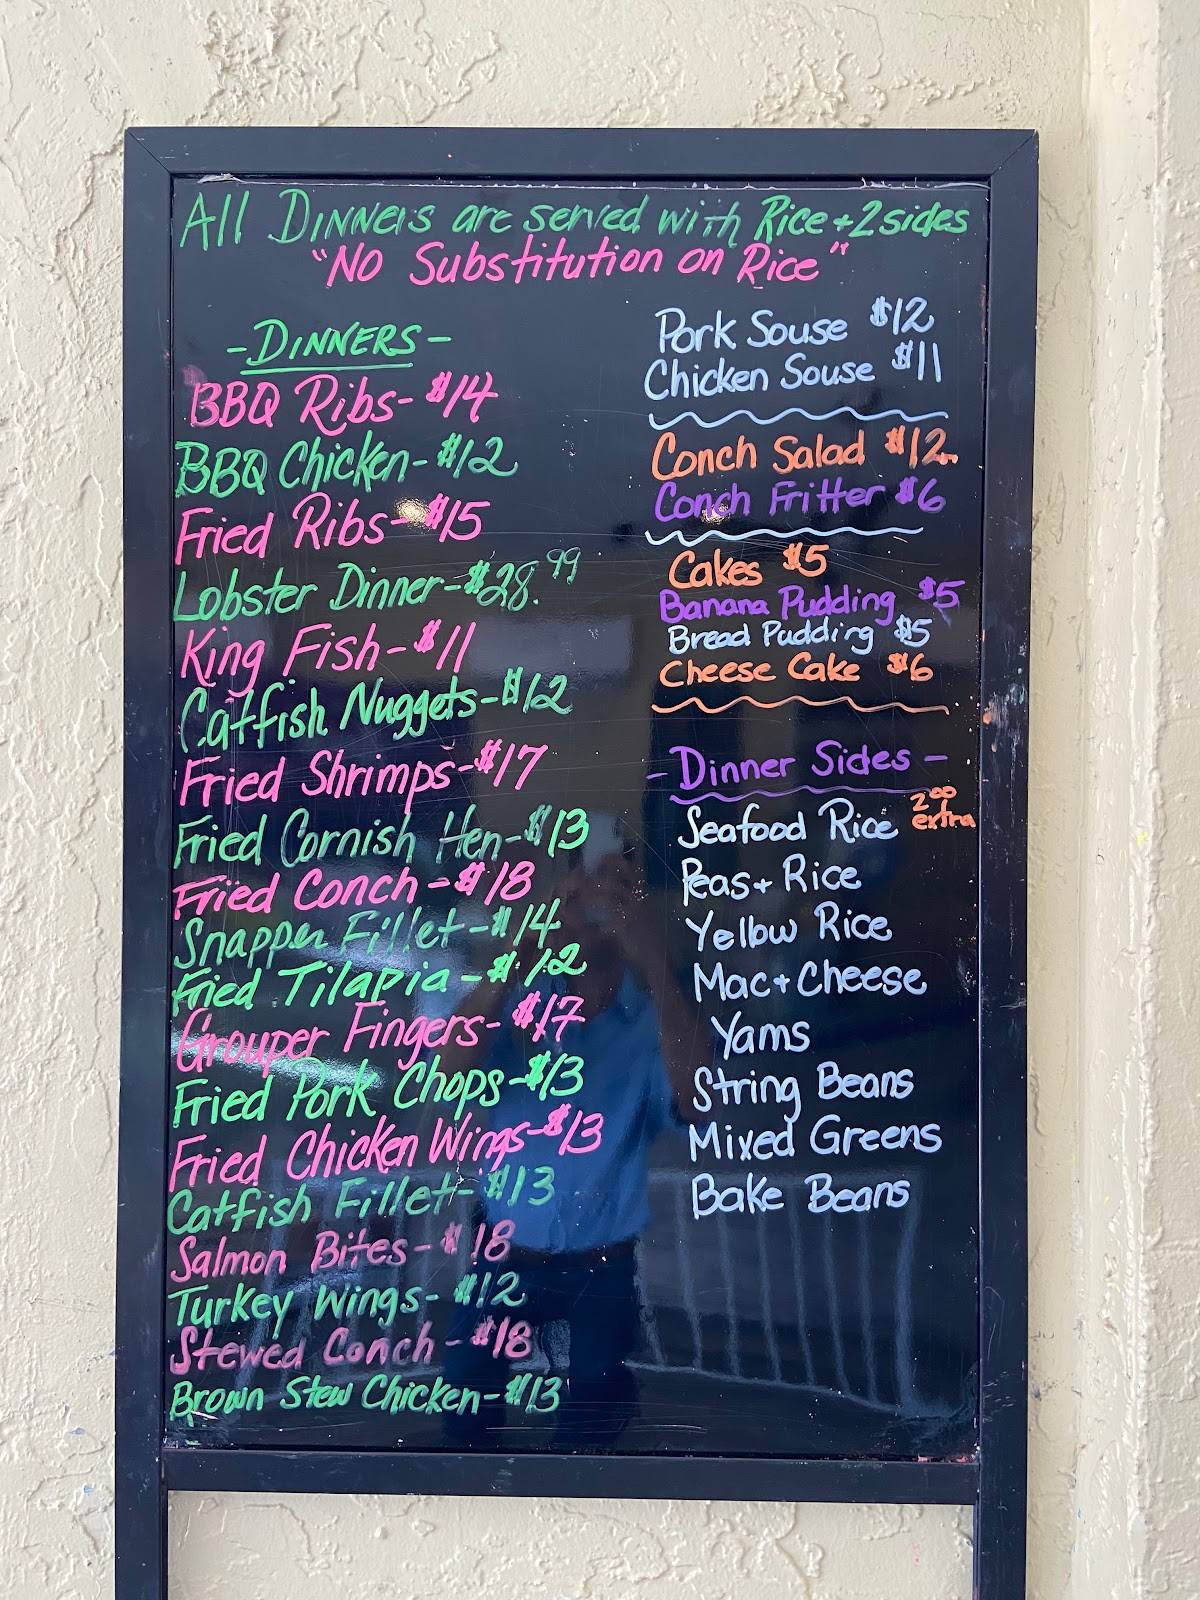 All Dinners are served with Rice + 2 sides
"No Substitution on Rice"
- Dinners -
BBQ Ribs - $14
BBQ Chicken - $12
Fried Ribs - $15
Lobster Dinner - $28.99
King Fish - $11
Catfish Nuggets - $12
Fried Shrimps - $17
Fried Cornish Hen - $13
Fried Conch - $18
Snapper Fillet - $14
Fried Tilapia - $12
Grouper Fingers - $17
Fried Pork Chops - $13
Fried Chicken Wings - $13
Catfish Fillet - $13
Salmon Bites - $18
Turkey Wings - $12
Stewed Conch - $18
Brown Stew Chicken - $13
Pork Souse $12
Chicken Souse $11
Conch Salad $12
Conch Fritter $6
Cakes $5
Banana Pudding $5
Bread Pudding $5
Cheese Cake $6
- Dinner Sides -
Seafood Rice 2.00 extra
Peas + Rice
Yellow Rice
Mac + Cheese
Yams
String Beans
Mixed Greens
Bake Beans